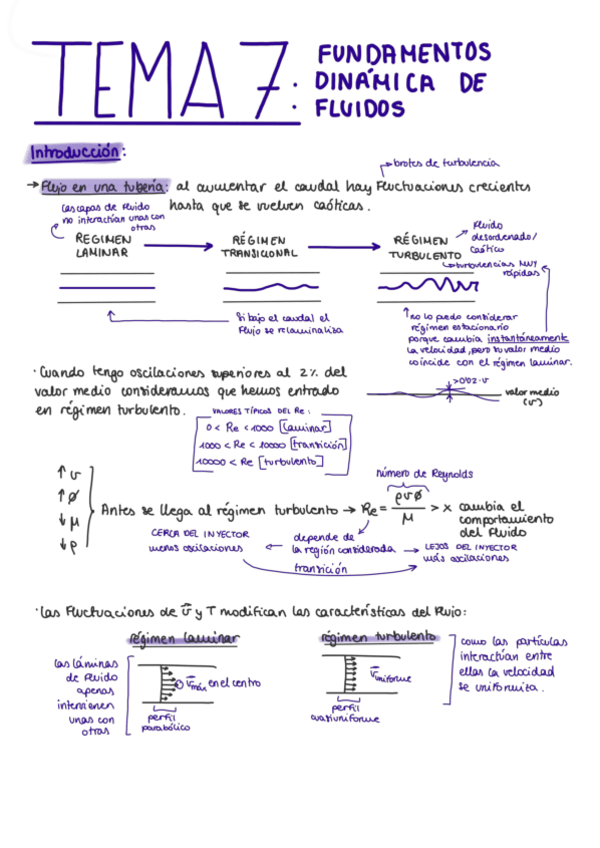 TEMA 7:
FUNDAMENTOS
DINÁMICA DE
FLUIDOS
Introducción:
brotes de turbulencia
→ Flujo en una tubería: al aumentar el caudal hay Fluctuaciones crecientes
hasta que se vuelven caóticas.
Las capas de fluido
no interactúan unas con
otras
RÉGIMEN
LAMINAR
RÉGIMEN
TRANSICIONAL
RÉGIMEN
TURBULENTO
Fluido
desordenado/
caótico
turbulencias MUY
rápidas
Si bajo el caudal el
Flujo se relaminaliza
no lo puedo considerar
régimen estacionario
porque cambia instantáneamente
la velocidad, pero su valor medio
coincide con el régimen laminar.
· Cuando tengo oscilaciones superiores al 2% del
valor medio consideramos que hemos entrado
en régimen turbulento.
>0'02·v
valor medio
(v)
VALORES TÍPICOS DEL Re:
0 < Re < 1000 [laminar]
1000 < Re < 10000 [transición]
10000 < Re [turbulento]
↑ v
↑ ø
↓ μ
↓ ρ
Antes se llega al régimen turbulento → Re = ρvø / μ > x cambia el
comportamiento
del Fluido
número de Reynolds
CERCA DEL INYECTOR
menos oscilaciones
depende de
la región considerada
LEJOS DEL INYECTOR
más oscilaciones
transición
· Las Fluctuaciones de v̄ y T modifican las características del Flujo:
régimen laminar
régimen turbulento
las láminas
de fluido
apenas
intervienen
unas con
otras
v̄máx en el centro
perfil
parabólico
v̄uniforme
perfil
cuasiuniforme
como las partículas
interactúan entre
ellas la velocidad
se uniformiza.